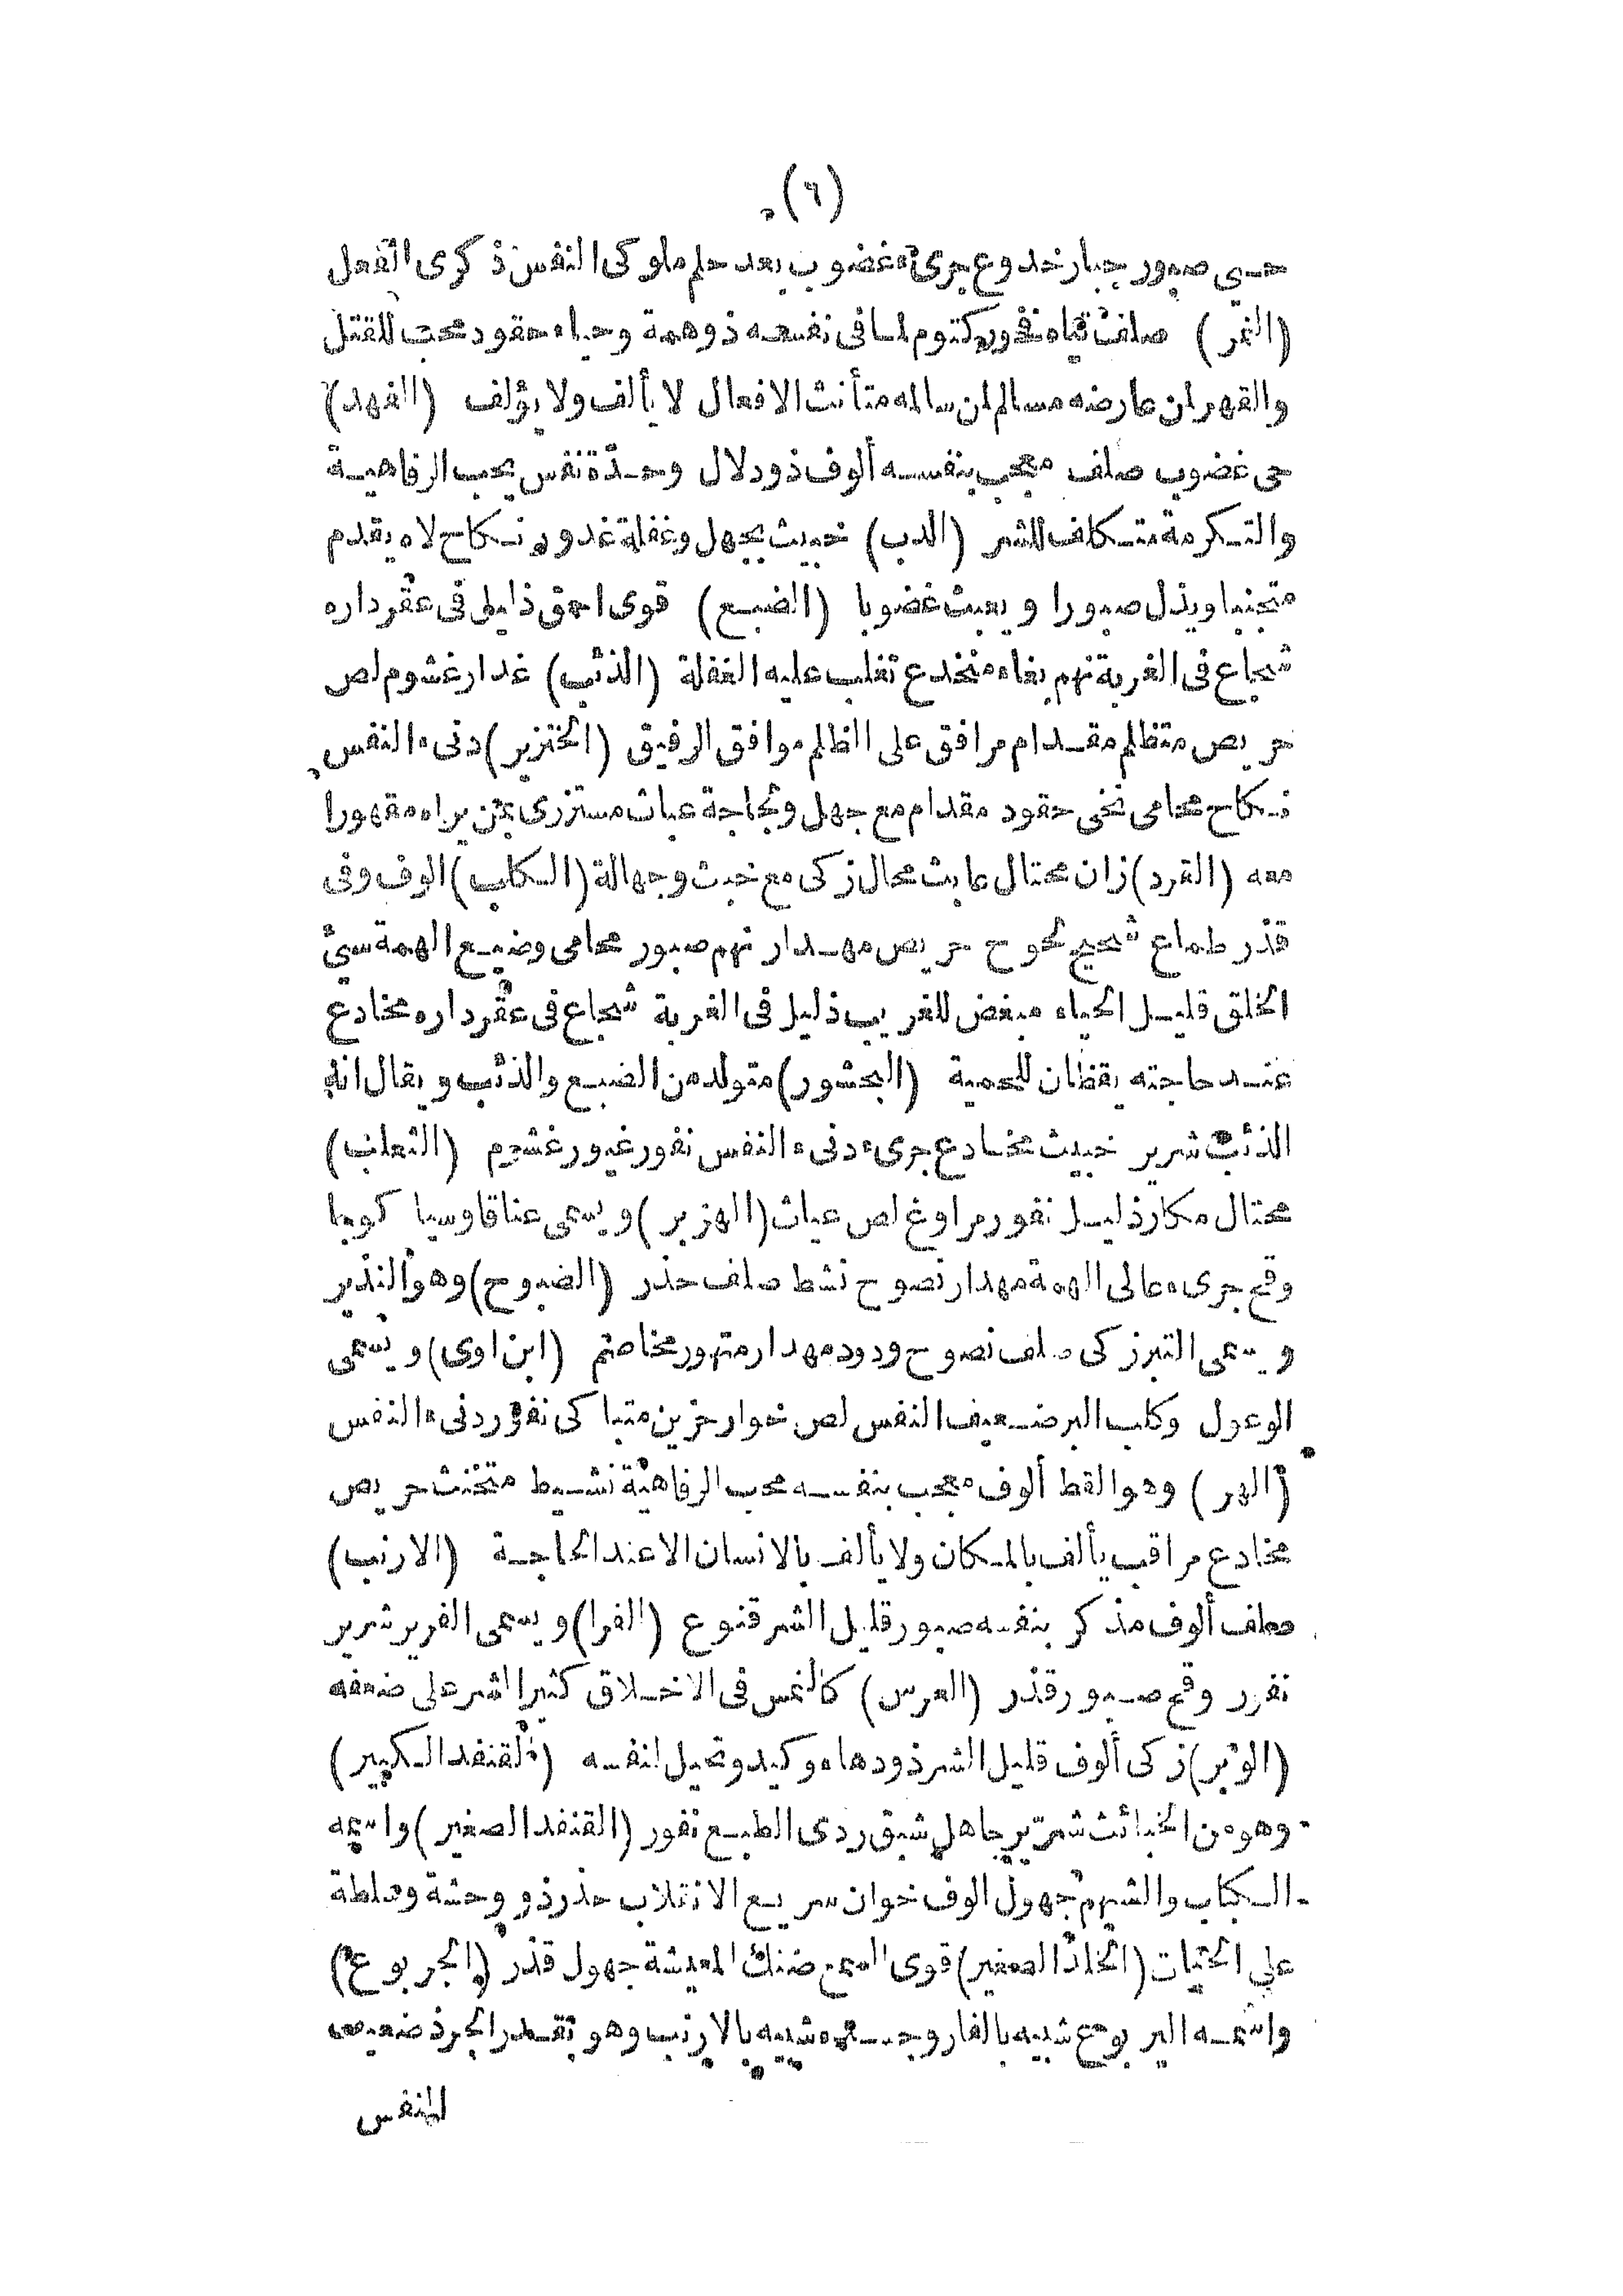 (٦)
حيى صبور جبار خدوع جرىء غضوب بعد حلم ملوكى النفس ذكرى الفعل
(النمر) صلف تياه نفور كتوم لما فى نفسه ذوهمة وحياء حقود محب للقتل
والقهر لمن عارضه مسالم لمن سالمه متأنث الافعال لا يألف ولا يؤلف (الفهد)
حى غضوب صلف معجب بنفسه ألوف ذو دلال وحدّة نفس يحب الرفاهية
والتكرمة متكلف للشر (الدب) خبيث بجهل وغفلة غدور نكاح لاه يقدم
متجنبا ويذل صبورا ويعبث غضوبا (الضبع) قوى احمق ذليل فى عقر داره
شجاع فى الغربة نهم بغاء منخدع تغلب عليه الغفلة (الذئب) غدار غشوم لص
حريص متظلم مقدام مرافق على الظلم موافق الرفيق (الخنزير) دنىء النفس
نكاح محامى نخى حقود مقدام مع جهل ولجاجة عباث مستزرى بمن يراه مقهورا
معه (القرد) زان محتال عابث محال زكى مع خبث وجهالة (الكلب) الوف وفى
قذر طماع شحيح لحوح حريص مهدار نهم صبور محامى وضيع الهمة سيئ
الخلق قليل الحياء مبغض للغريب ذليل فى الغربة شجاع فى عقر داره مخادع
عند حاجته يقظان للحمية (البحشور) متولد من الضبع والذئب ويقال انه
الذئب شرير خبيث مخادع جرىء دنىء النفس نفور غيور غشوم (الثعلب)
محتال مكار ذليل نفور مراوغ لص عياث (الهزبر) ويسمى عناقا وسيا كوبا
وقح جرىء عالى الهمة مهدار نصوح نشط صلف حذر (الضبوح) وهو النذير
ويسمى التبرز كى صلف نصوح ودود مهدار متهور مخاصم (ابن اوى) ويسمى
الوعول وكلب البر ضعيف النفس لص خوار حزين متباكى نفور دنىء النفس
(الهر) وهو القط ألوف معجب بنفسه محب الرفاهية نشيط متخنث حريص
مخادع مراقب يألف بالمكان ولا يألف بالانسان الا عند الحاجة (الارنب)
صلف ألوف مذكر بنفسه صبور قليل الشر قنوع (الفرا) ويسمى الفرير شرير
نفور وقح صبور قذر (العرس) كالنمس فى الاخلاق كثير الشر على ضعفه
(الوبر) زكى ألوف قليل الشر ذو دهاء وكيد وتحيل لنفسه (القنفد الكبير)
وهو من الخبائث شرّير جاهل شبق ردى الطبع نفور (القنفد الصغير) واسمه
الكباب والشيهم جهول الوف خوان سريع الانقلاب حذر ذو وحشة وسلطة
على الحيات (الخلد الصغير) قوى السمع ضنك المعيشة جهول قذر (الجربوع)
واسمه اليربوع شبيه بالفار وجسمه شبيه بالارنب وهو بقدر الجرذ ضعيف
النفس